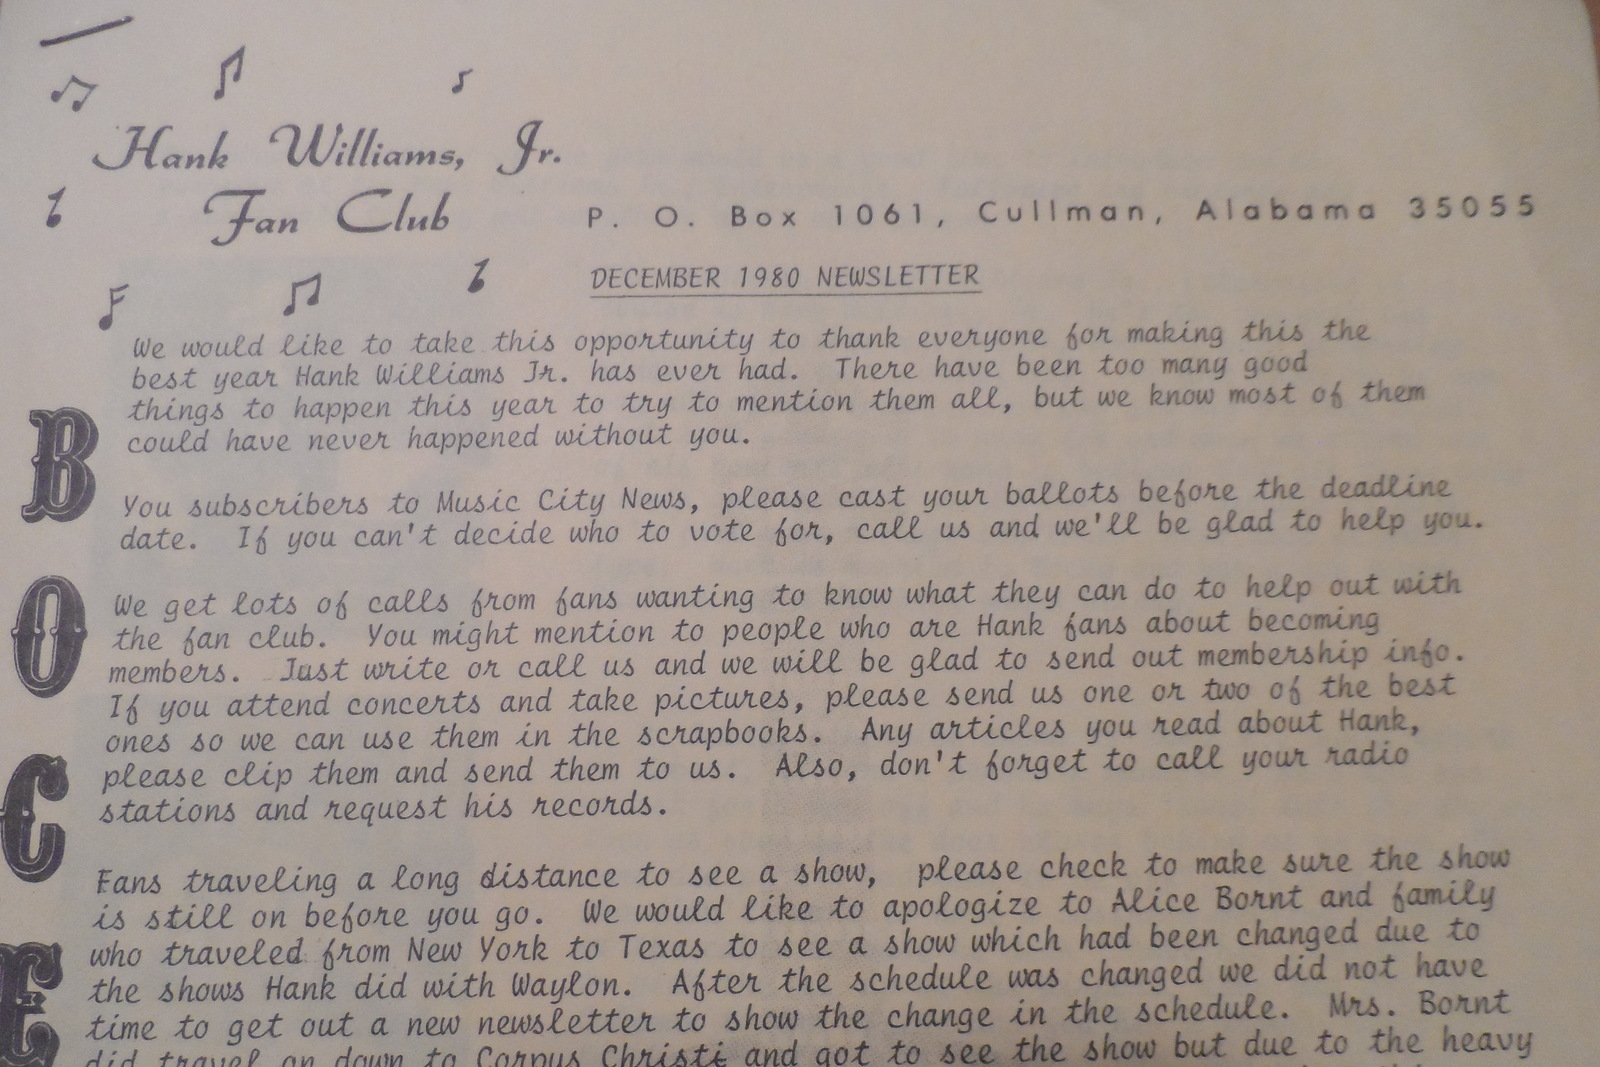 Hank Williams, Jr.
Fan Club
P. O. Box 1061, Cullman, Alabama 35055
DECEMBER 1980 NEWSLETTER
We would like to take this opportunity to thank everyone for making this the
best year Hank Williams Jr. has ever had. There have been too many good
things to happen this year to try to mention them all, but we know most of them
could have never happened without you.
You subscribers to Music City News, please cast your ballots before the deadline
date. If you can't decide who to vote for, call us and we'll be glad to help you.
We get lots of calls from fans wanting to know what they can do to help out with
the fan club. You might mention to people who are Hank fans about becoming
members. Just write or call us and we will be glad to send out membership info.
If you attend concerts and take pictures, please send us one or two of the best
ones so we can use them in the scrapbooks. Any articles you read about Hank,
please clip them and send them to us. Also, don't forget to call your radio
stations and request his records.
Fans traveling a long distance to see a show, please check to make sure the show
is still on before you go. We would like to apologize to Alice Bornt and family
who traveled from New York to Texas to see a show which had been changed due to
the shows Hank did with Waylon. After the schedule was changed we did not have
time to get out a new newsletter to show the change in the schedule. Mrs. Bornt
did travel on down to Corpus Christi and got to see the show but due to the heavy
B
O
C
E